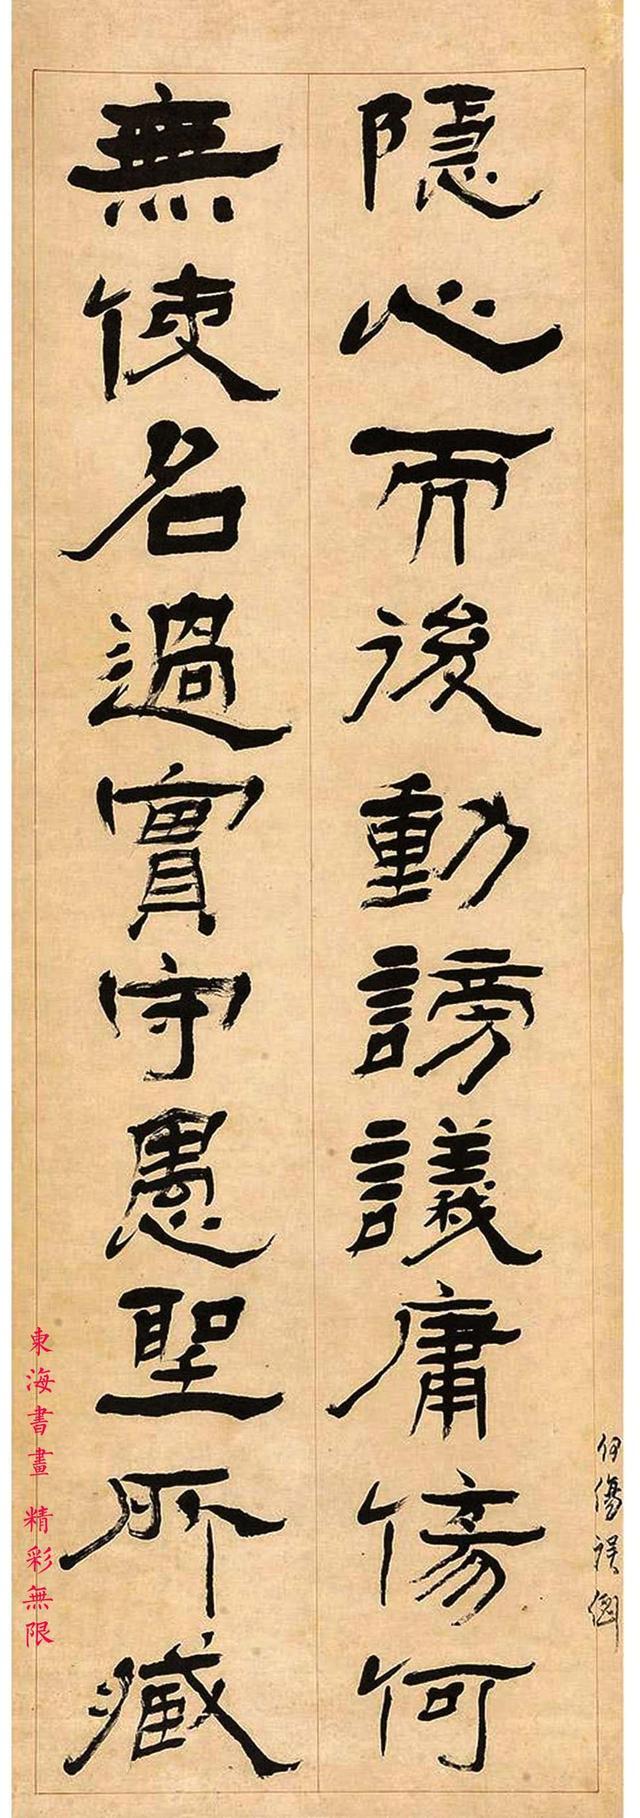 隱心而後動謗議庸傷何
無使名過實守愚聖所臧
何傷誤倒
東海書畫 精彩無限